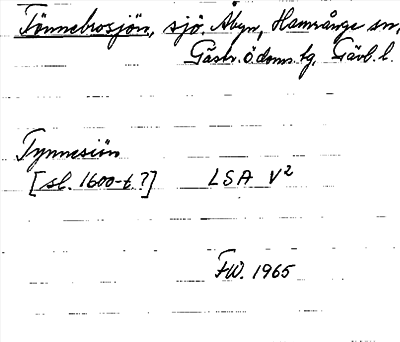 Tönnebrosjön, sjö. Åbyn, Hamrånge sn,
Gästr. Ödom. tg. Gävl. l.
Tynnesiön
[sl. 1600-t ?] LSA V²
FW. 1965